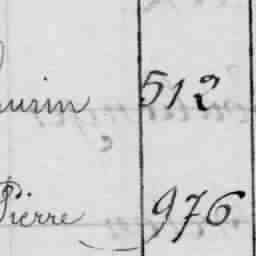 512
Pierre 976